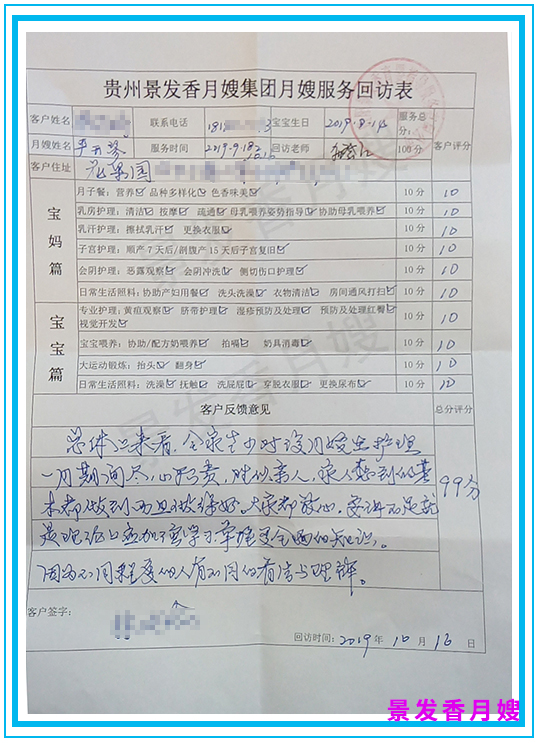 贵州景发香月嫂集团月嫂服务回访表
客户姓名 联系电话 181 3 宝宝生日 2019.8.14 服务总分: 客户评分
月嫂姓名 服务时间 2019.9.18 回访老师 100分
客户住址 花果园
宝妈篇
月子餐:营养☑ 品种多样化☑ 色香味美☑ 10分 10
乳房护理:清洁☑ 按摩☑ 疏通☑ 母乳喂养姿势指导☑ 协助母乳喂养☑ 10分 10
乳汗护理:擦拭乳汗☑ 更换衣服☑ 10分 10
子宫护理:顺产7天后/剖腹产15天后子宫复旧☑ 10分 10
会阴护理:恶露观察☑ 会阴冲洗☑ 侧切伤口护理☑ 10分 10
日常生活照料:协助产妇用餐☑ 洗头洗澡☑ 衣物清洁☑ 房间通风打扫☑ 10分 10
宝宝篇
专业护理:黄疸观察☑ 脐带护理☑ 湿疹预防及处理☑ 预防及处理红臀☑
视觉开发☑ 10分 10
宝宝喂养:协助/配方奶喂养☑ 拍嗝☑ 奶具消毒☑ 10分 10
大运动锻炼:抬头☑ 翻身☑ 10分 10
日常生活照料:洗澡☑ 抚触☑ 洗屁屁☑ 穿脱衣服☑ 更换尿布☑ 10分 10
客户反馈意见 总分评分
总体上来看,全家
一月期间尽心尽责,胜似亲人,家人想到的基
本都做到而且做得好,大家都放心,要讲不足就
是理论上应加
因为不同程度的人有不同的看法与理解。
99分
客户签字:
回访时间:2019年10月16日
景发香月嫂
景发香月嫂
景发香月嫂